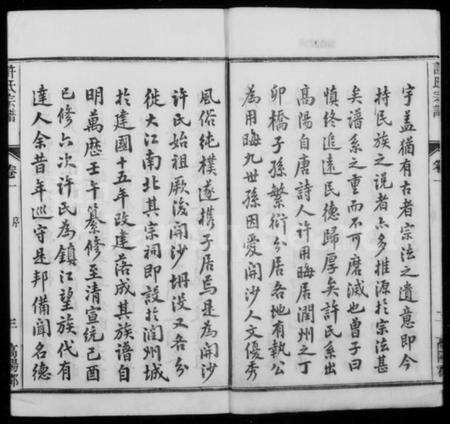 宇蓋猶有古者宗法之遺意即今
持民族之說者亦多推源於宗法甚
矣譜系之重而不可磨滅也曾子曰
慎終追遠民德歸厚矣許氏系出
高陽自唐詩人許用晦居潤州之丁
卯橋子孫繁衍分居各地有執公
為用晦九世孫因愛開沙人文優秀
風俗純樸遂携子居焉是為開沙
許氏始祖厥後開沙坍没又各分
徙大江南北其宗祠即設於潤州城
於建國十五年改建落成其族譜自
明萬歷壬午纂修至清宣統己酉
已修六次許氏為鎮江望族代有
達人余昔年巡守是邦備聞名德
許氏宗譜
卷一
序
三
高陽郡